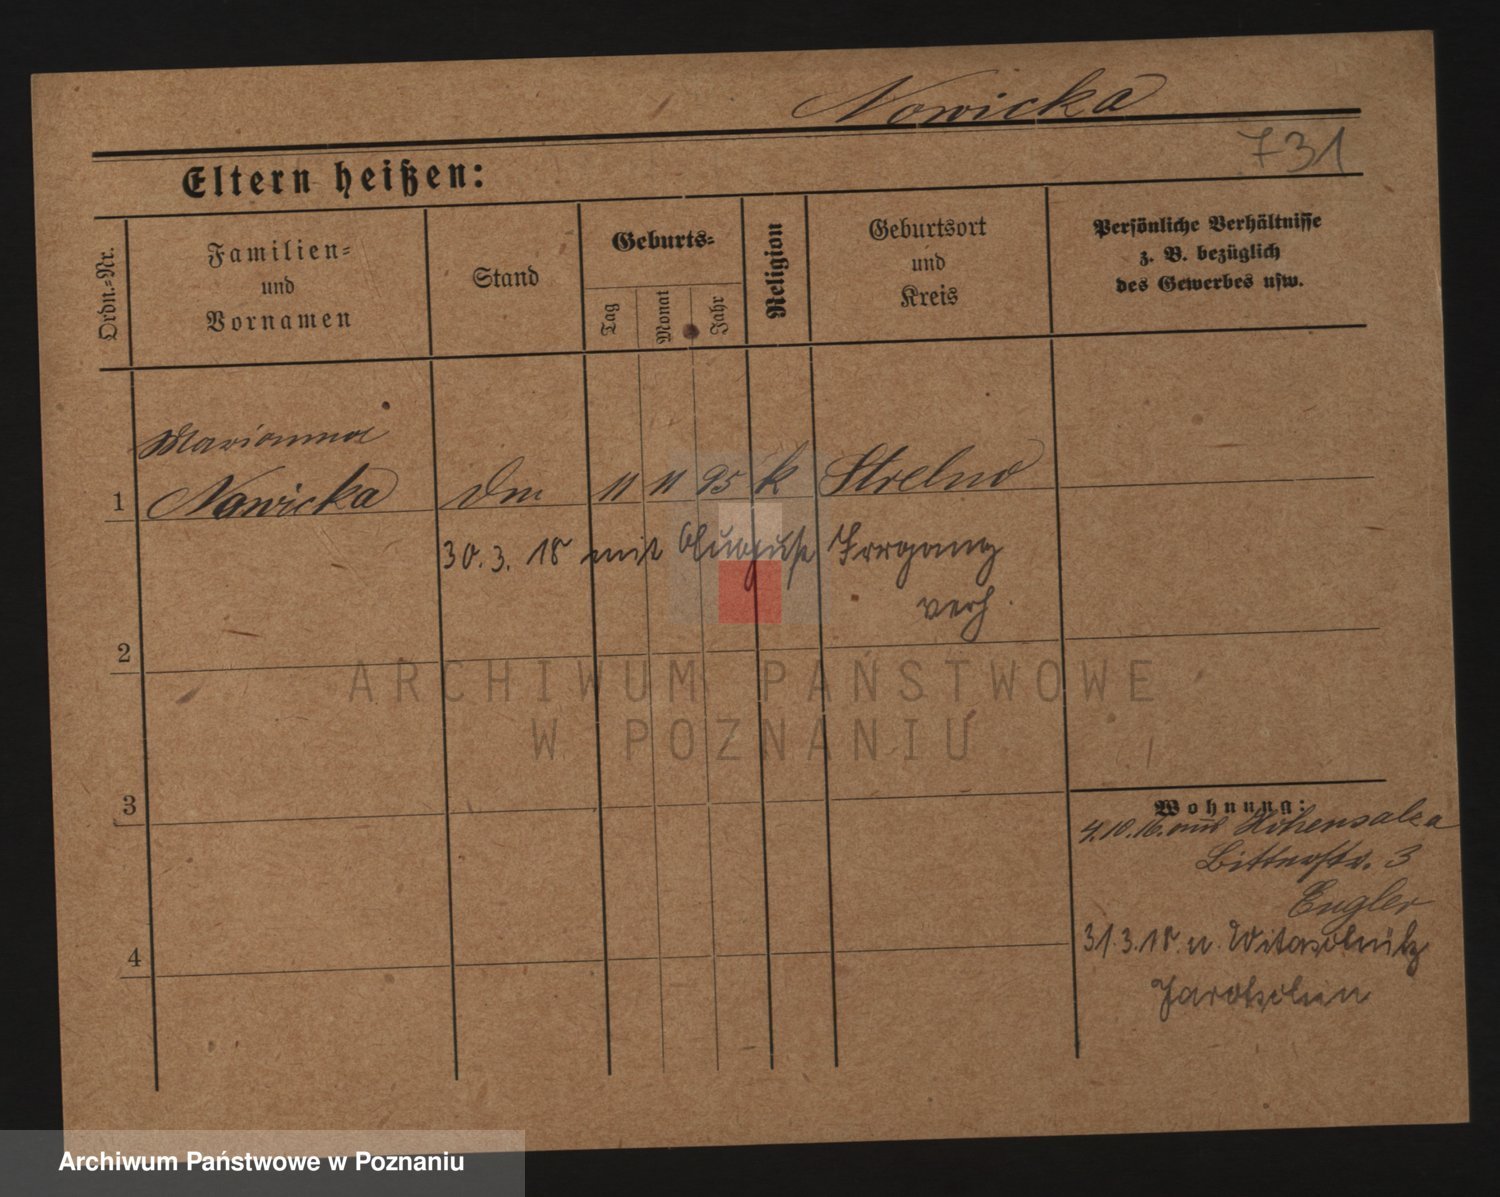 Nowicka
731
Eltern heißen:
Ordn.=Nr.
Familien=
und
Vornamen
Stand
Geburts=
Tag
Monat
Jahr
Religion
Geburtsort
und
Kreis
Persönliche Verhältnisse
z. B. bezüglich
des Gewerbes usw.
Marianna
1 Nowicka Dm 11 11 95 k Strelno
30. 3. 18 mit August Irrgang
verh.
2
3
4
Wohnung:
4.10.16. aus Hohensalza
Bittnerstr. 3
Engler
31.3.18. n. Witaschütz
Jarotschin
ARCHIWUM PAŃSTWOWE
W POZNANIU
Archiwum Państwowe w Poznaniu